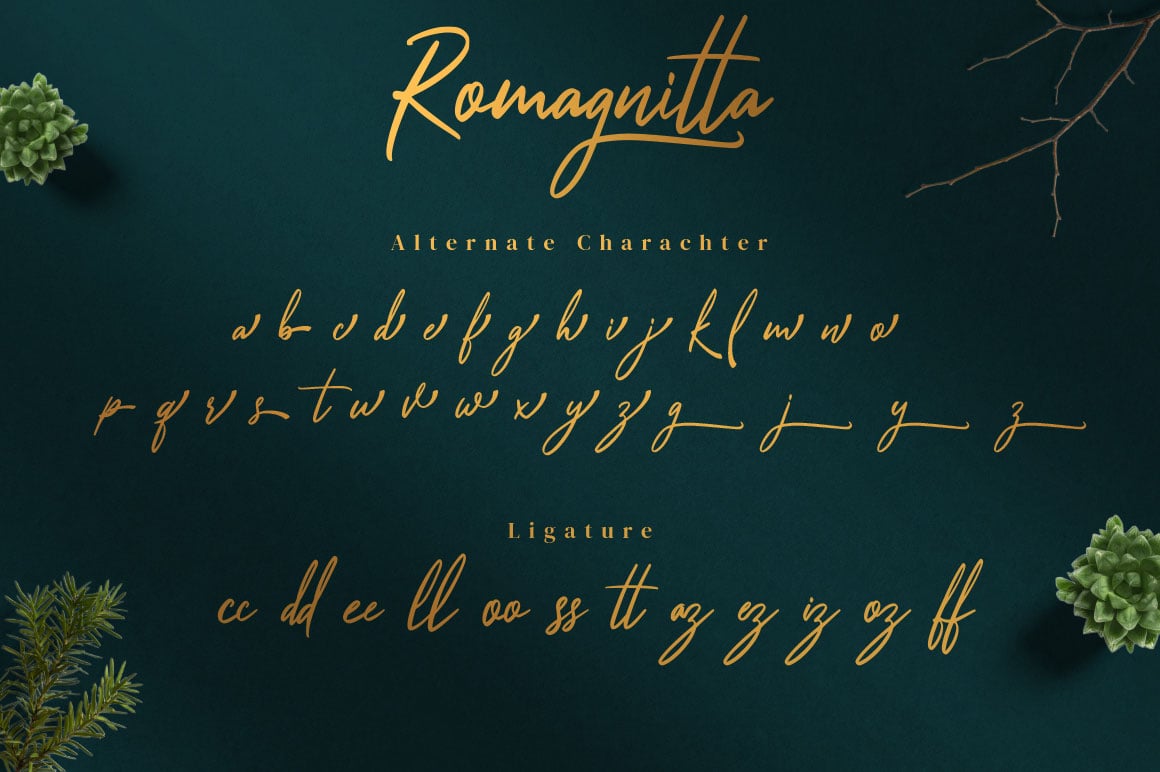 Romagnitta
Alternate Charachter
a b c d e f g h i j k l m n o
p q r s t w v w x y z g j y z
Ligature
cc dd ee ll oo ss tt az ez iz oz ff